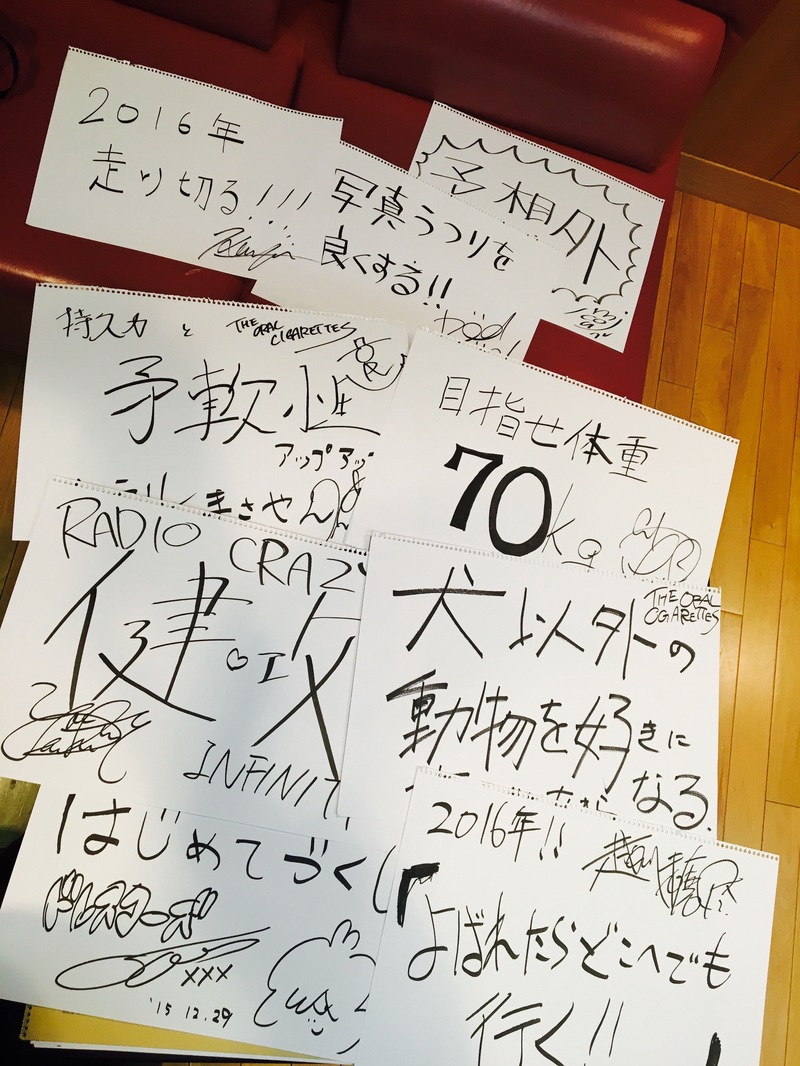 2016年
走り切る!!!
予相外
写真うつりを
良くする!!
持久力と
THE ORAL
CIGARETTES
アップ
目指せ体重
70kg
RADIO CRAZY
健
INFINIT
THE ORAL
CIGARETTES
犬以外の
動物を好きに
なる.
はじめてづくし
ドレスコーズ
xxx
'15 12.29
2016年!!
よばれたらどこへでも
行く!!